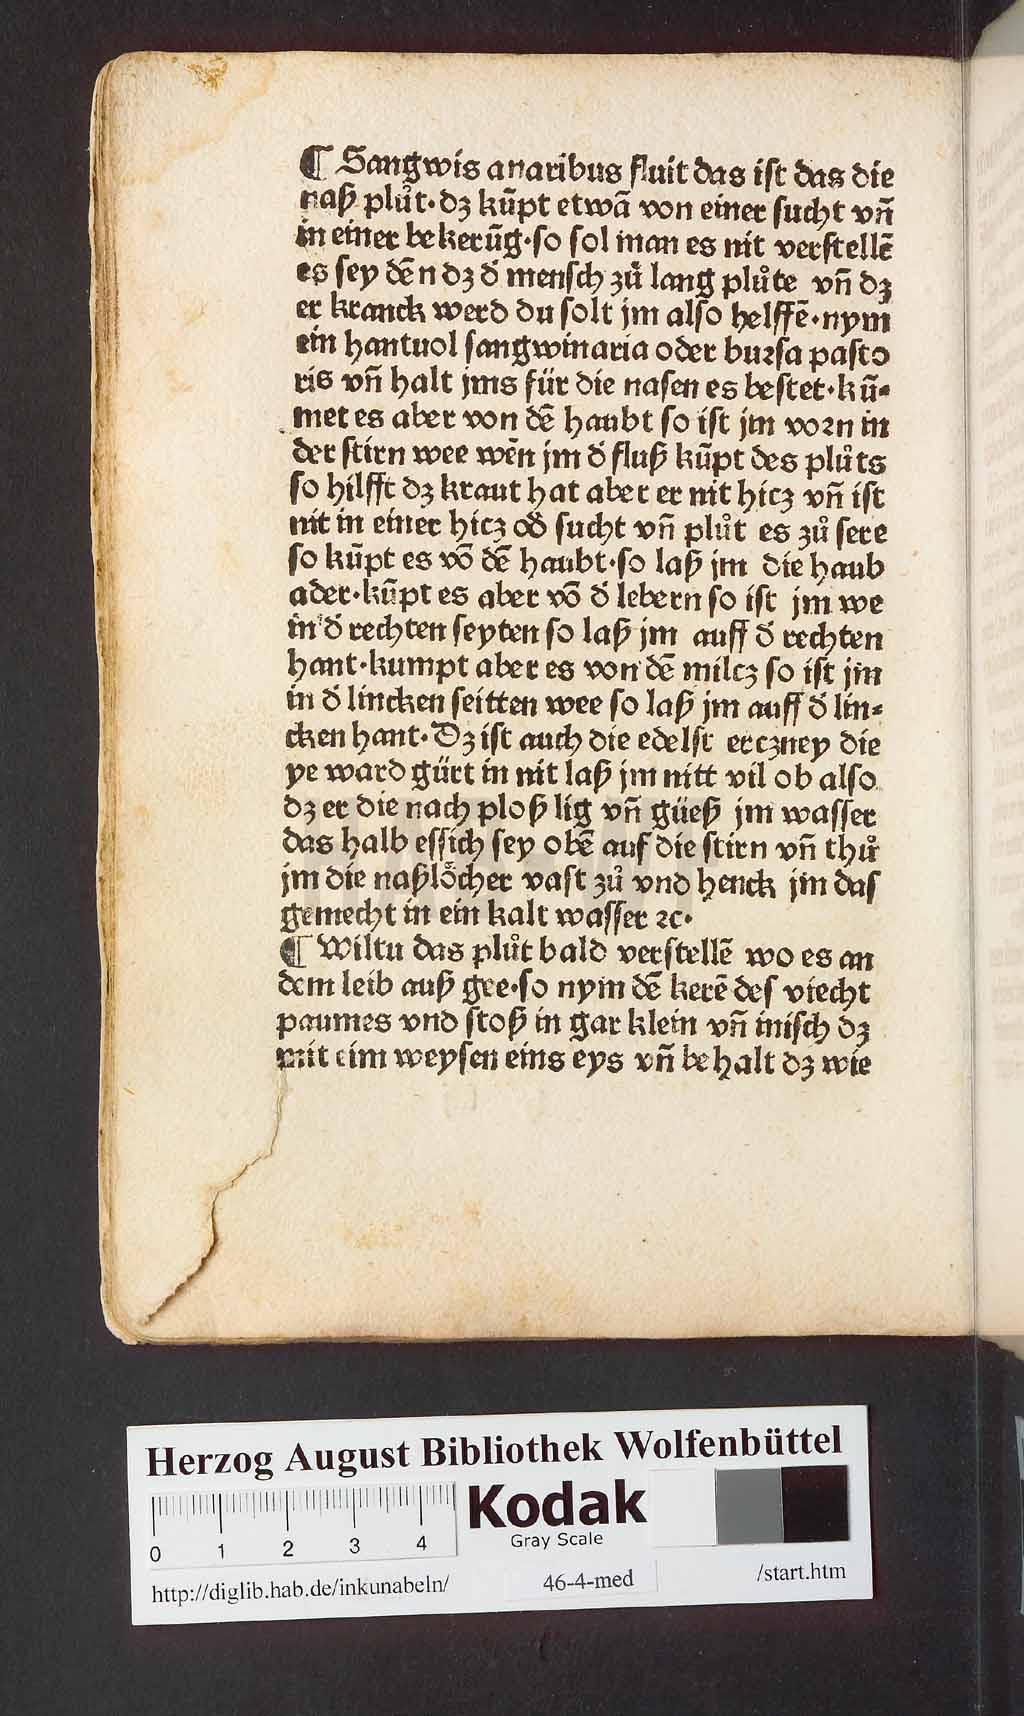 ¶ Sangwis anaribus fluit das ist das die
naß plůt·dz kũpt etwã von einer sucht vñ
in einer bekerũg·so sol man es nit verstellẽ
es sey dẽn dz d̾ mensch zů lang plůte vñ dz
er kranck werd du solt jm also helffẽ·nym
ein hantuol sangwinaria oder bursa pasto
ris vñ halt jms für die nasen es bestet·kũ⸗
met es aber von dẽ haubt so ist jm vorn in
der stirn wee wẽn jm d̾ fluß kũpt des plůts
so hilfft dz kraut hat aber er nit hicz vñ ist
nit in einer hicz od̾ sucht vñ plůt es zů sere
so kũpt es võ dẽ haubt·so laß jm die haub
ader·kũpt es aber võ d̾ lebern so ist jm we
in d̾ rechten seyten so laß jm auff d̾ rechten
hant·kumpt aber es von dẽ milcz so ist jm
in d̾ lincken seitten wee so laß jm auff d̾ lin⸗
cken hant·Dz ist auch die edelst erczney die
ye ward gürt in nit laß jm nitt vil ob also
dz er die nach ploß lig vñ güeß jm wasser
das halb essich sey obẽ auf die stirn vñ thů
jm die naßlo̊cher vast zů vnd henck jm das
gemecht in ein kalt wasser ꝛc·
¶ Wiltu das plůt bald verstellẽ wo es an
dem leib auß gee·so nym dẽ kerẽ des viecht
paumes vnd stoß in gar klein vñ misch dz
mit eim weysen eins eys vñ behalt dz wie
Herzog August Bibliothek Wolfenbüttel
Kodak
Gray Scale
0 1 2 3 4
http://diglib.hab.de/inkunabeln/ 46-4-med /start.htm